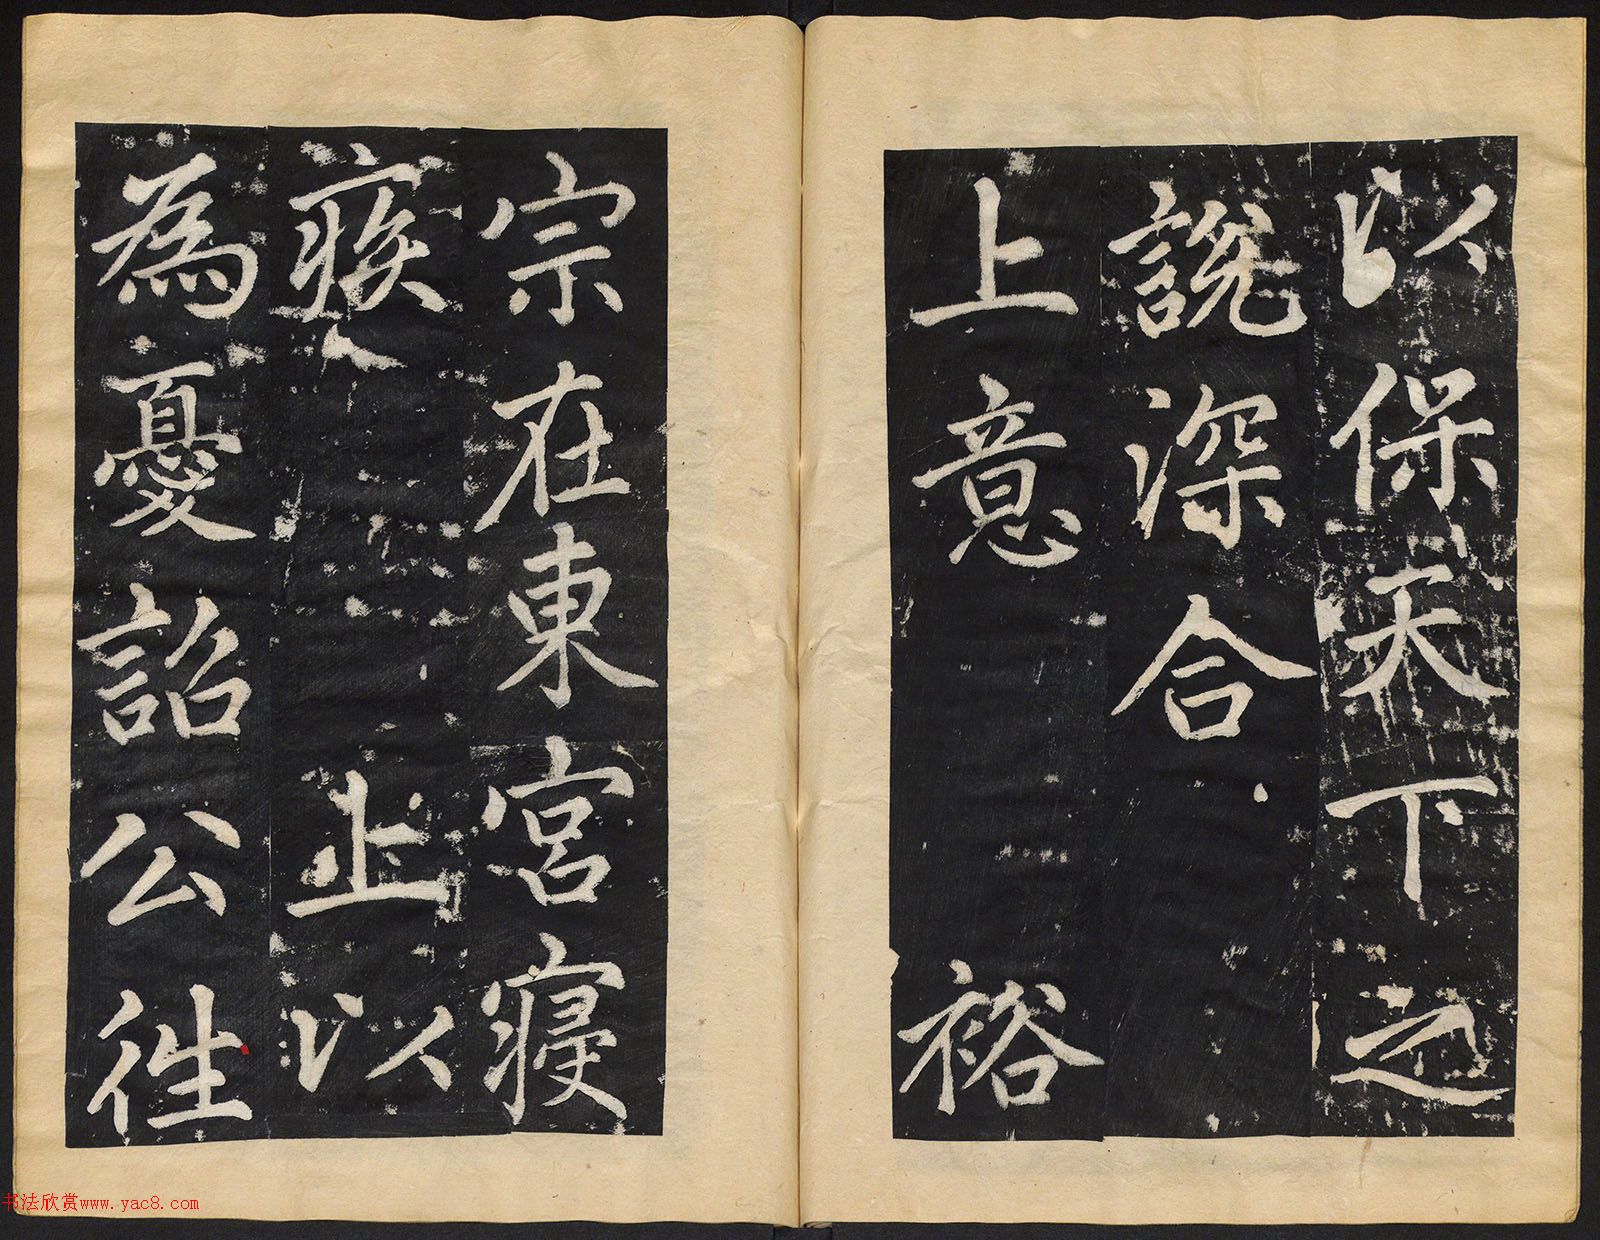 以保天下之
說深合
上意 裕
宗在東宮寢
疾 上以
為憂詔公往
书法欣赏www.yac8.com